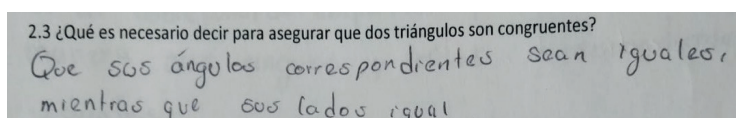 2.3 ¿Qué es necesario decir para asegurar que dos triángulos son congruentes?
Que sus ángulos correspondientes sean iguales,
mientras que sus lados igual